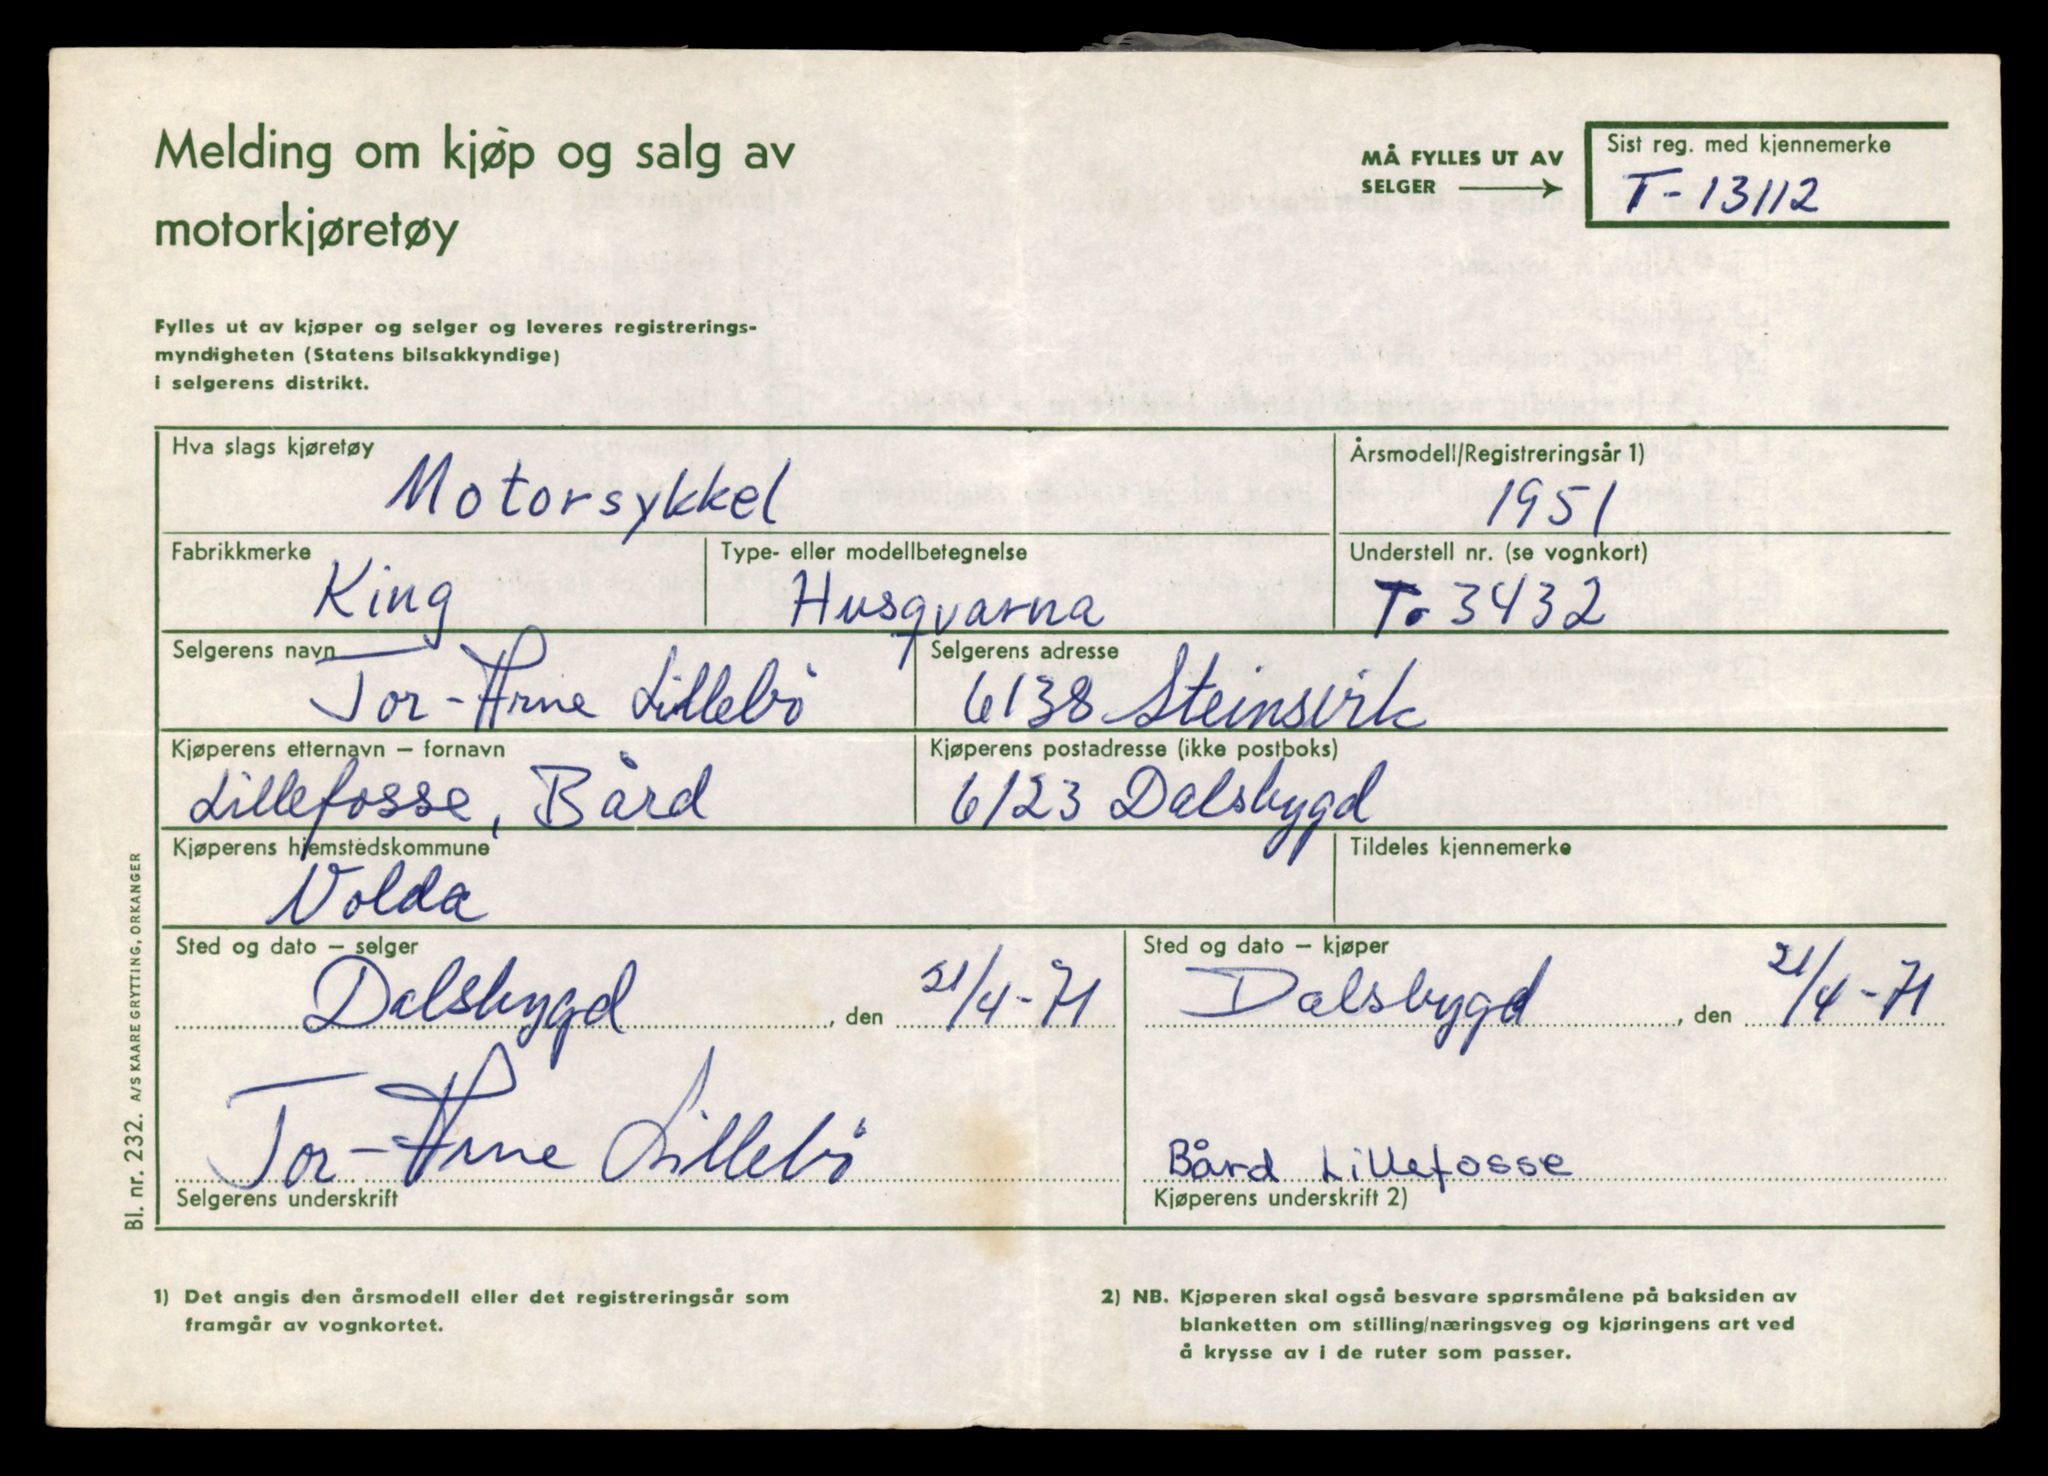 Melding om kjøp og salg av
motorkjøretøy
MÅ FYLLES UT AV
SELGER
Sist reg. med kjennemerke
T-13112
Fylles ut av kjøper og selger og leveres registrerings-
myndigheten (Statens bilsakkyndige)
i selgerens distrikt.
Hva slags kjøretøy
Motorsykkel
Årsmodell/Registreringsår 1)
1951
Fabrikkmerke
King
Type- eller modellbetegnelse
Husqvarna
Understell nr. (se vognkort)
To 3432
Selgerens navn
Tor-Arne Lillebö
Selgerens adresse
6138 Steinsvik
Kjøperens etternavn – fornavn
Lillefosse, Bård
Kjøperens postadresse (ikke postboks)
6123 Dalsbygd
Kjøperens hjemstedskommune
Volda
Tildeles kjennemerke
Sted og dato – selger
Dalsbygd, den 21/4-71
Sted og dato – kjøper
Dalsbygd, den 21/4-71
Tor-Arne Lillebö
Selgerens underskrift
Bård Lillefosse
Kjøperens underskrift 2)
Bl. nr. 232. A/S KAARE GRYTTING, ORKANGER
1) Det angis den årsmodell eller det registreringsår som
framgår av vognkortet.
2) NB. Kjøperen skal også besvare spørsmålene på baksiden av
blanketten om stilling/næringsveg og kjøringens art ved
å krysse av i de ruter som passer.